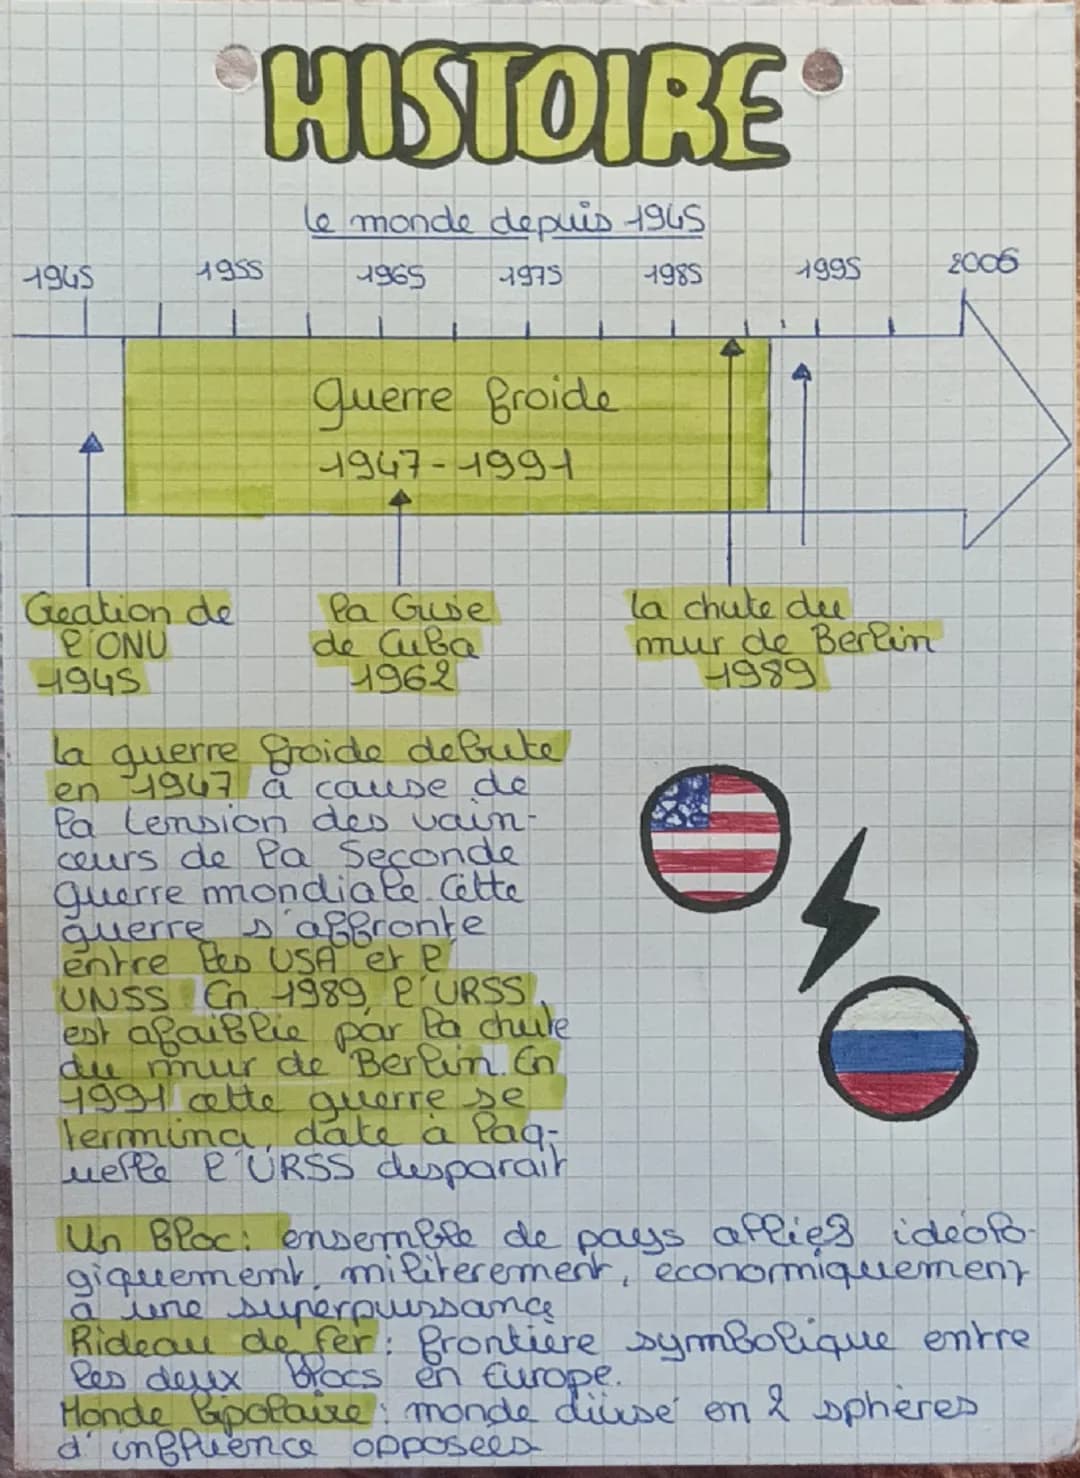 HISTOIRE
le monde depuis 1945
1945 1955 1965 1975 1985 1995 2006
guerre froide
1947-1991
Création de
l'ONU
1945
la Crise
de Cuba
1962
la chute du
mur de Berlin
1989
la guerre froide debute
en 1947 à cause de
la tension des vain-
ceurs de la Seconde
guerre mondiale. Cette
guerre s'affronte
entre les USA et l'
UNSS. En 1989, l'URSS
est afaiblie par la chute
du mur de Berlin. En
1991 cette guerre se
termina, date à laq-
uelle l'URSS desparait
Un Bloc : ensemble de pays alliés idéolo-
giquement, militerement, economiquement
à une superpuissance
Rideau de fer : frontière symbolique entre
les deux blocs en Europe.
Monde Bipolaire : monde divisé en 2 sphères
d'influence opposées